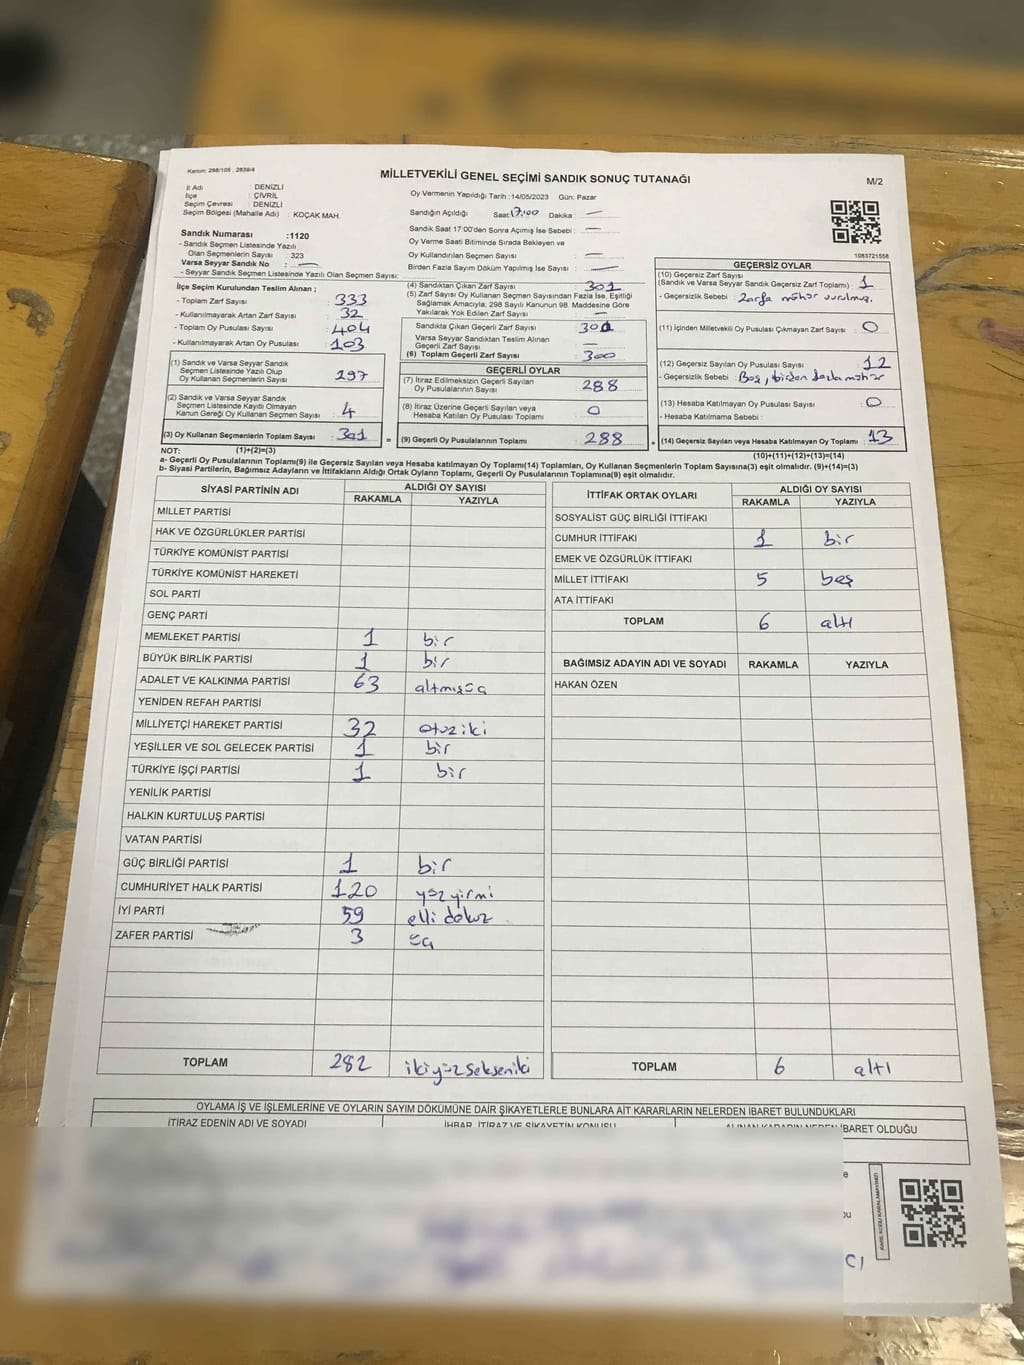 Kanun: 298/105 , 2839/4
MİLLETVEKİLİ GENEL SEÇİMİ SANDIK SONUÇ TUTANAĞI
M/2
İl Adı : DENİZLİ
İlçe : ÇİVRİL
Seçim Çevresi : DENİZLİ
Seçim Bölgesi (Mahalle Adı) : KOÇAK MAH.
Sandık Numarası :1120
- Sandık Seçmen Listesinde Yazılı
Olan Seçmenlerin Sayısı : 323
Varsa Seyyar Sandık No : —
- Seyyar Sandık Seçmen Listesinde Yazılı Olan Seçmen Sayısı:
Oy Vermenin Yapıldığı Tarih :14/05/2023 Gün: Pazar
Sandığın Açıldığı Saat:17:00 Dakika : —
Sandık Saat 17:00'den Sonra Açımış İse Sebebi : —
Oy Verme Saati Bitiminde Sırada Bekleyen ve
Oy Kullandırılan Seçmen Sayısı : —
Birden Fazla Sayım Döküm Yapılmış İse Sayısı : —
1083721558
İlçe Seçim Kurulundan Teslim Alınan ;
- Toplam Zarf Sayısı : 333
- Kullanılmayarak Artan Zarf Sayısı : 32
- Toplam Oy Pusulası Sayısı : 404
- Kullanılmayarak Artan Oy Pusulası : 103
(1) Sandık ve Varsa Seyyar Sandık
Seçmen Listesinde Yazılı Olup
Oy Kullanan Seçmenlerin Sayısı : 297
(2) Sandık ve Varsa Seyyar Sandık
Seçmen Listesinde Kayıtlı Olmayan
Kanun Gereği Oy Kullanan Seçmen Sayısı : 4
(3) Oy Kullanan Seçmenlerin Toplam Sayısı : 301
(4) Sandıktan Çıkan Zarf Sayısı : 301
(5) Zarf Sayısı Oy Kullanan Seçmen Sayısından Fazla İse, Eşitliği
Sağlamak Amacıyla, 298 Sayılı Kanunun 98. Maddesine Göre
Yakılarak Yok Edilen Zarf Sayısı : —
Sandıkta Çıkan Geçerli Zarf Sayısı :
Varsa Seyyar Sandıktan Teslim Alınan
Geçerli Zarf Sayısı : —
(6) Toplam Geçerli Zarf Sayısı : 300
GEÇERLİ OYLAR
(7) İtiraz Edilmeksizin Geçerli Sayılan
Oy Pusulalarının Sayısı : 288
(8) İtiraz Üzerine Geçerli Sayılan veya
Hesaba Katılan Oy Pusulası Toplamı : 0
= (9) Geçerli Oy Pusulalarının Toplamı : 288
GEÇERSİZ OYLAR
(10) Geçersiz Zarf Sayısı
(Sandık ve Varsa Seyyar Sandık Geçersiz Zarf Toplamı) : 1
- Geçersizlik Sebebi : Zarfa mühür vurulmuş.
(11) İçinden Milletvekili Oy Pusulası Çıkmayan Zarf Sayısı : 0
(12) Geçersiz Sayılan Oy Pusulası Sayısı : 12
- Geçersizlik Sebebi : Boş, birden fazla mühür
(13) Hesaba Katılmayan Oy Pusulası Sayısı : 0
- Hesaba Katılmama Sebebi :
+ (14) Geçersiz Sayılan veya Hesaba Katılmayan Oy Toplamı : 13
NOT: (1)+(2)=(3)
(10)+(11)+(12)+(13)=(14)
a- Geçerli Oy Pusulalarının Toplamı(9) ile Geçersiz Sayılan veya Hesaba katılmayan Oy Toplamı(14) Toplamları, Oy Kullanan Seçmenlerin Toplam Sayısına(3) eşit olmalıdır. (9)+(14)=(3)
b- Siyasi Partilerin, Bağımsız Adayların ve İttifakların Aldığı Oy Ortak Oyların Toplamı, Geçerli Oy Pusulalarının Toplamına(9) eşit olmalıdır.
SİYASİ PARTİNİN ADI ALDIĞI OY SAYISI
RAKAMLA YAZIYLA
MİLLET PARTİSİ
HAK VE ÖZGÜRLÜKLER PARTİSİ
TÜRKİYE KOMÜNİST PARTİSİ
TÜRKİYE KOMÜNİST HAREKETİ
SOL PARTİ
GENÇ PARTİ
MEMLEKET PARTİSİ 1 bir
BÜYÜK BİRLİK PARTİSİ 1 bir
ADALET VE KALKINMA PARTİSİ 63 altmışüç
YENİDEN REFAH PARTİSİ
MİLLİYETÇİ HAREKET PARTİSİ 32 otuziki
YEŞİLLER VE SOL GELECEK PARTİSİ 1 bir
TÜRKİYE İŞÇİ PARTİSİ 1 bir
YENİLİK PARTİSİ
HALKIN KURTULUŞ PARTİSİ
VATAN PARTİSİ
GÜÇ BİRLİĞİ PARTİSİ 1 bir
CUMHURİYET HALK PARTİSİ 120 yüz yirmi
İYİ PARTİ 59 elli dokuz
ZAFER PARTİSİ 3 üç
TOPLAM 282 ikiyüzsekseniki
İTTİFAK ORTAK OYLARI ALDIĞI OY SAYISI
RAKAMLA YAZIYLA
SOSYALİST GÜÇ BİRLİĞİ İTTİFAKI
CUMHUR İTTİFAKI 1 bir
EMEK VE ÖZGÜRLÜK İTTİFAKI
MİLLET İTTİFAKI 5 beş
ATA İTTİFAKI
TOPLAM 6 altı
BAĞIMSIZ ADAYIN ADI VE SOYADI RAKAMLA YAZIYLA
HAKAN ÖZEN
TOPLAM 6 altı
OYLAMA İŞ VE İŞLEMLERİNE VE OYLARIN SAYIM DÖKÜMÜNE DAİR ŞİKAYETLERLE BUNLARA AİT KARARLARIN NELERDEN İBARET BULUNDUKLARI
İTİRAZ EDENİN ADI VE SOYADI İHBAR, İTİRAZ VE ŞİKAYETİN KONUSU ALINAN KARARIN NEDEN İBARET OLDUĞU